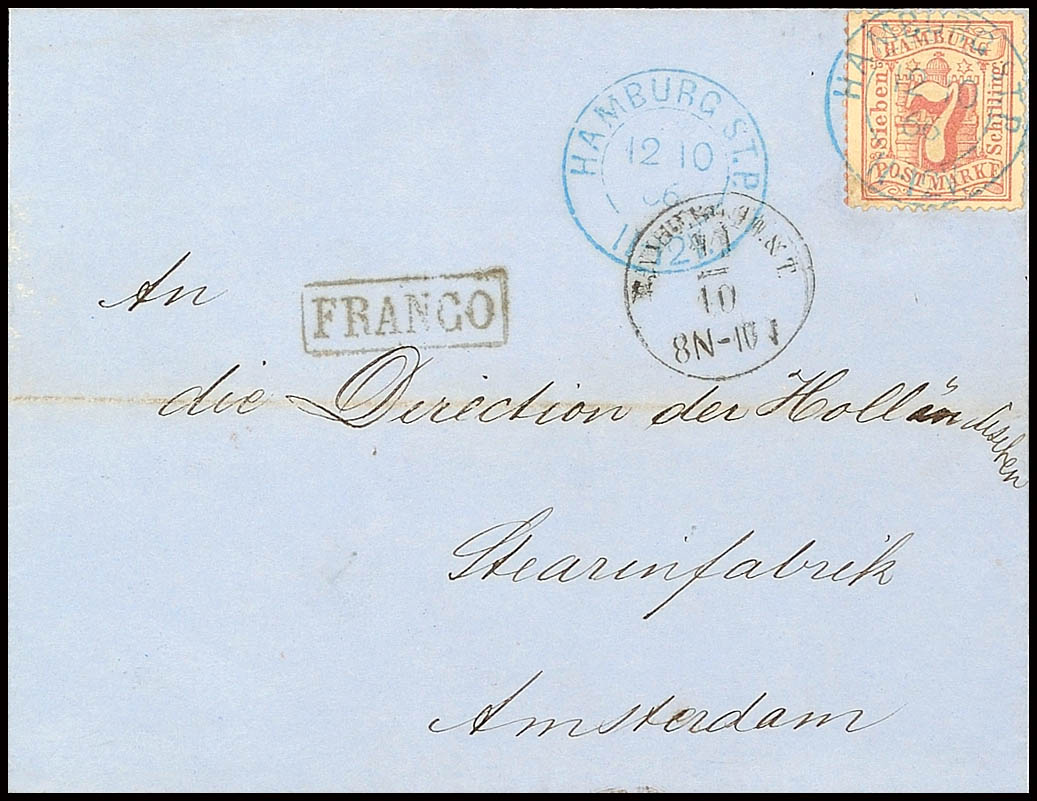 HAMBURG
sieben
7
Schilling
POSTMARKE
HAMBURG ST.P.
12 10
66
HAMBURG ST.P.
12 10
66
10
8N-10
FRANCO
An
die Direction der Holländischen
Stearinfabrik
Amsterdam